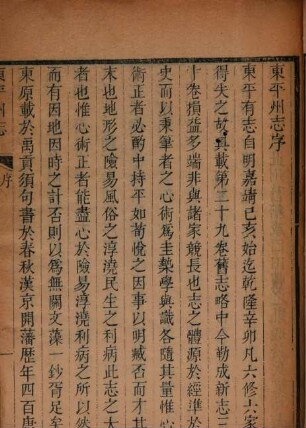 東平州志序
東平有志自明嘉靖己亥始迄乾隆辛卯凡六修六家
得失之故具載第二十九卷舊志略中今勒成新志三
十卷損益多端非與諸家競長也志之體源於經準於
史而以秉筆者之心術爲圭槷學與識各隨其量惟心
術正者必酌中持平如荀悅之因事以明臧否而才其
末也地形之險易風俗之淳澆民生之利病此志之大
者也惟心術正者能盡心於險易淳澆利病之所以然
而有因地因時之計否則以爲無關文藻一鈔胥足矣
東原載於禹貢須句書於春秋漢京開藩歷年四百唐
東平州志
序